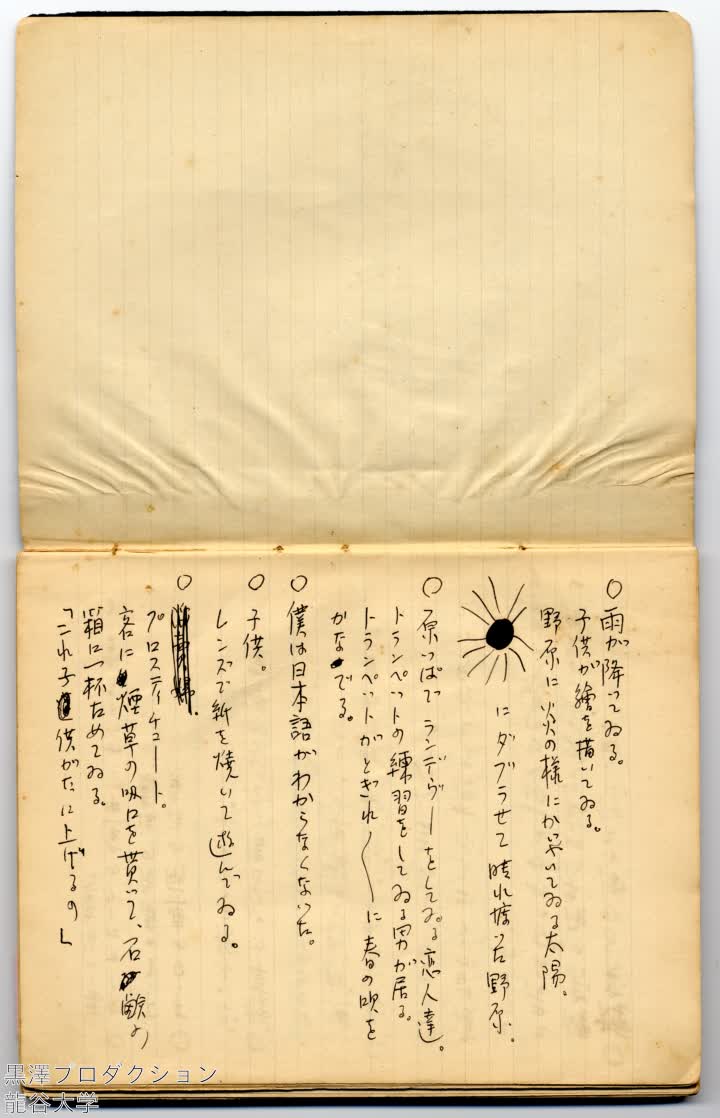 ○雨が降ってゐる。
子供が繪を描いてゐる。
野原に炎の様にかゞやいてゐる太陽。
にダブラせて晴れ渡った野原。
○原っぱでランデヴーをしてゐる恋人達。
トランペットの練習をしてゐる男が居る。
トランペットがとぎれ〱に春の唄を
かなでる。
○僕は日本語がわからなくなった。
○子供。
レンズで紙を焼いて遊んでゐる。
○
プロスティチュート。
客に煙草の吸口を貰って、石鹸の
箱に一杯ためてゐる。
「これ子供がたに上げるの」
黒澤プロダクション
龍谷大学